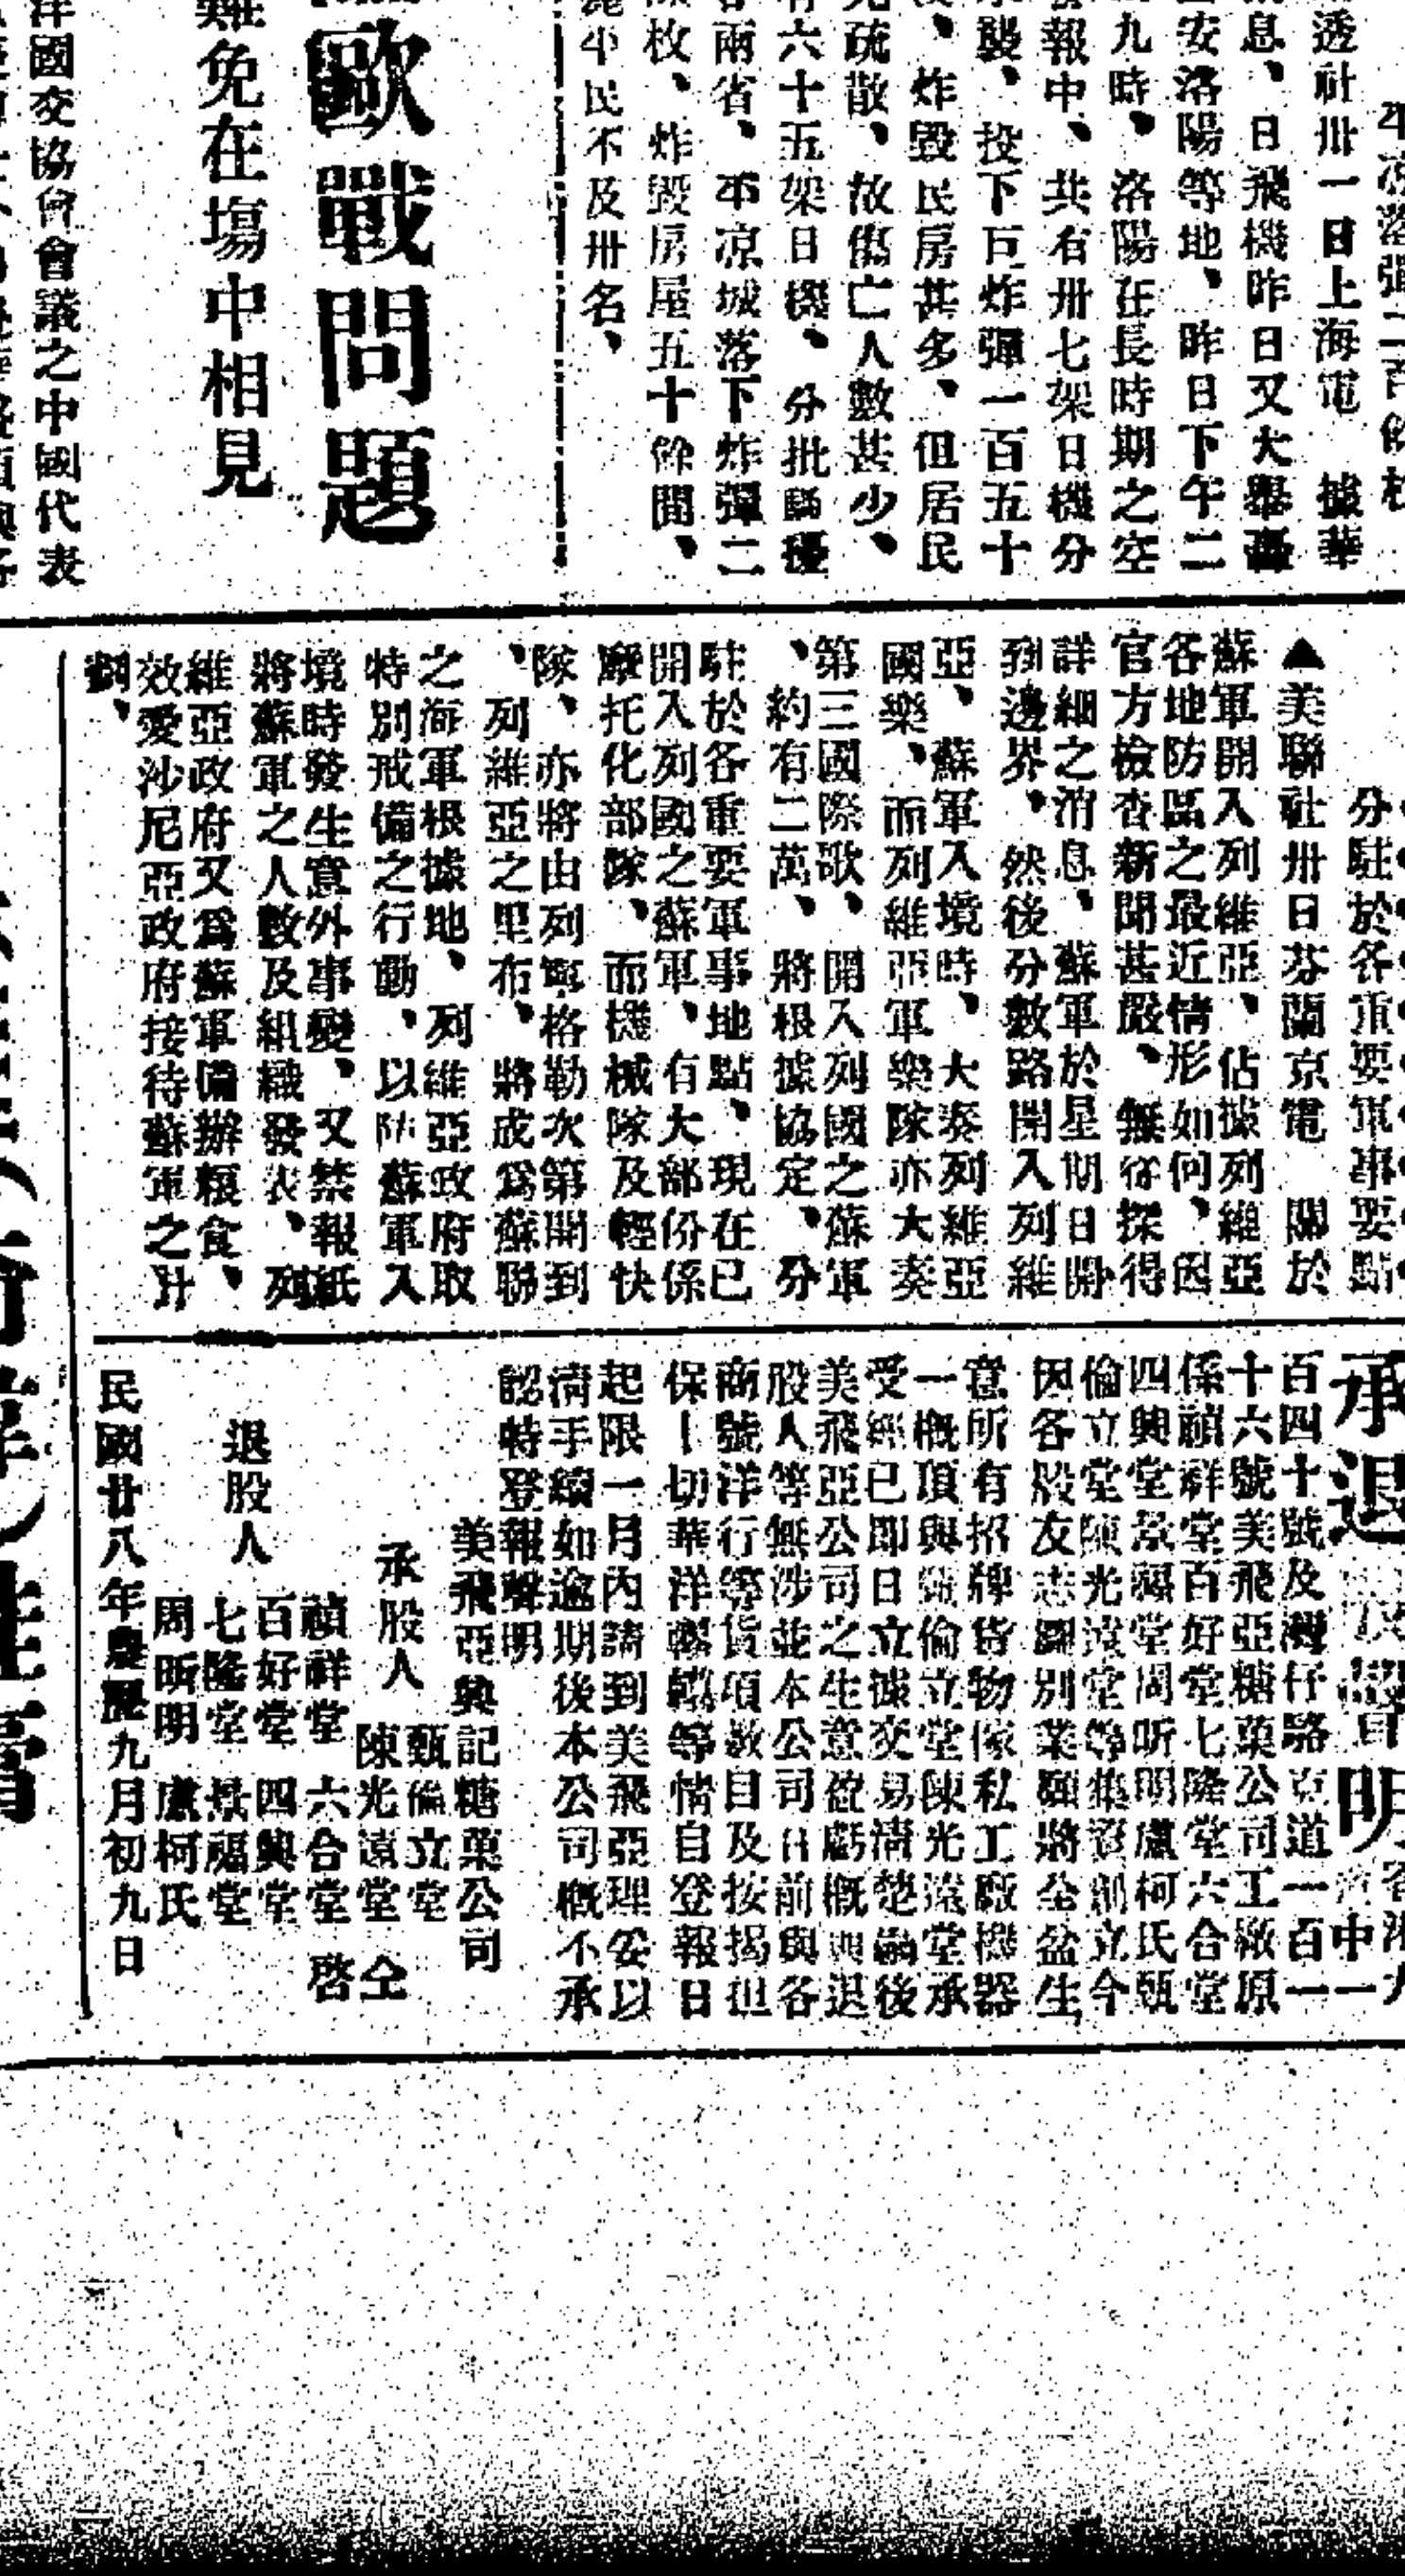 平凉落彈二百餘枚
透社卅一日上海電　據華
息、日飛機昨日又大舉轟
安洛陽等地、昨日下午二
九時、洛陽在長時期之空
報中、共有卅七架日機分
襲、投下巨炸彈一百五十
、炸毀民房甚多、但居民
疏散、故傷亡人數甚少、
六十五架日機、分批騷擾
兩省、平凉城落下炸彈二
枚、炸毀房屋五十餘間、
平民不及卅名、
歐戰問題
難免在塲中相見
洋國交協會會議之中國代表
分駐於各重要軍事要點
▲美聯社卅日芬蘭京電　關於
蘇軍開入列維亞、佔據列維亞
各地防區之最近情形如何、因
官方檢查新聞甚嚴、無從探得
詳細之消息、蘇軍於星期日開
到邊界、然後分數路開入列維
亞、蘇軍入境時、大奏列維亞
國樂、而列維亞軍樂隊亦大奏
第三國際歌、開入列國之蘇軍
、約有二萬、將根據協定、分
駐於各重要軍事地點、現在已
開入列國之蘇軍、有大部份係
摩托化部隊、而機械隊及輕快
隊、亦將由列寧格勒次第開到
、列維亞之里布、將成爲蘇聯
之海軍根據地、列維亞政府取
特別戒備之行動、以防蘇軍入
境時發生意外事變、又禁報紙
將蘇軍之人數及組織發表、列
維亞政府又爲蘇軍備辦糧食、
效愛沙尼亞政府接待蘇軍之計
劃、
承退股聲明
百四十號及灣仔路克道一百一
十六號美飛亞糖菓公司工廠原
係禎祥堂百好堂七隆堂六合堂
四興堂景福堂周昕明盧柯氏甄
倫立堂陳光遠堂等集資創立今
因各股友志圖別業願將全盆生
意所有招牌貨物傢私工廠機器
一概頂與甄倫立堂陳光遠堂承
受經已即日立據交易淸楚嗣後
美飛亞公司之生意盈虧概與退
股人等無涉並本公司日前與各
商號洋行等貨項數目及按揭担
保一切華洋轇轕等情自登報日
起限一月內請到美飛亞理妥以
淸手續如逾期後本公司概不承
認特登報聲明
美飛亞興記糖菓公司
承股人　甄倫立堂
陳光遠堂　仝
禎祥堂　六合堂　啓
退股人　百好堂　四興堂
七隆堂　景福堂
周昕明　盧柯氏
民國廿八年農歷九月初九日